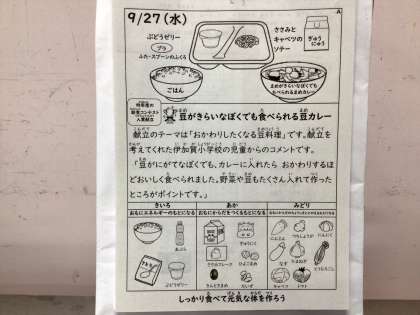 9/27(水)
A
ぶどうゼリー
プラ
ふた・スプーンのふくろ
ささみと
キャベツの
ソテー
ぎゅう
にゅう
ごはん
まめがきらいなぼくでも
たべられるまめカレー
豆がきらいなぼくでも食べられる豆カレー
献立のテーマは「おかわりしたくなる豆料理」です。献立を
考えてくれた伊加賀小学校の児童からのコメントです。
「豆がにがてなぼくでも、カレーに入れたら おかわりするほ
どおいしく食べられました。野菜や豆もたくさん入れて作った
ところがポイントです。」
きいろ
あか
みどり
おもにエネルギーのもとになる
おもにからだをつくるもとになる
ぎゅうにゅう
ひよこまめ
だいず
ぶどうゼリー
にんじん
にんにく
なす
たまねぎ
キャベツ
トマト
しっかり食べて元気な体を作ろう